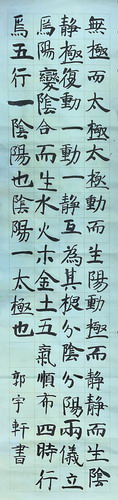 無極而太極太極動而生陽動極而靜靜而生陰
靜極復動一動一靜互為其根分陰分陽兩儀立
焉陽變陰合而生水火木金土五氣順布四時行
焉五行一陰陽也陰陽一太極也 郭宇軒書